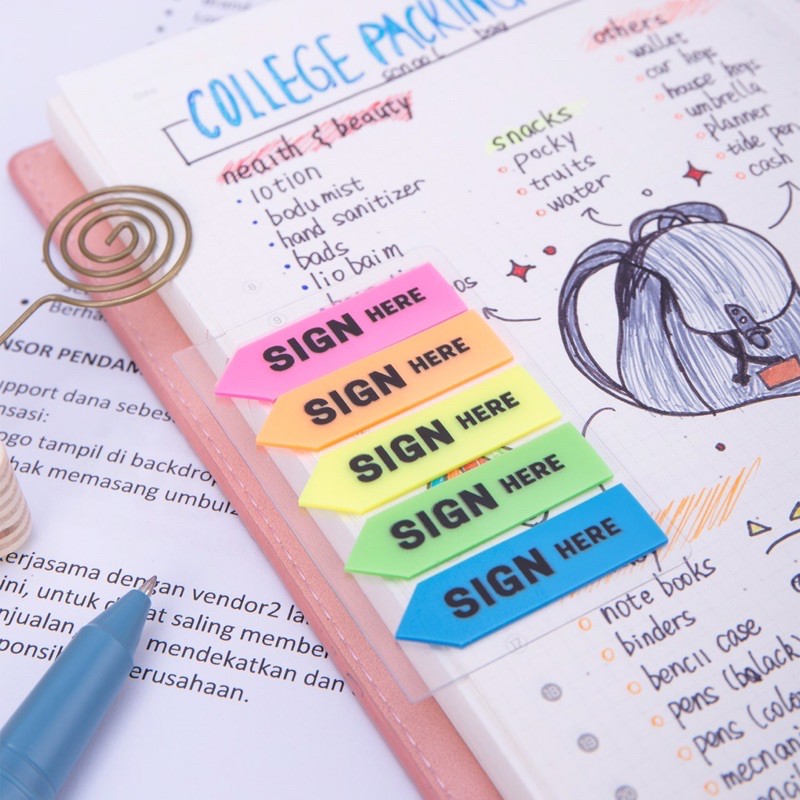 COLLEGE PACKING
school bag
nealth & beauty
lotion
bodumist
hand sanitizer
bads
lio baim
snacks
pocky
truits
water
others
wallet
car keys
house keys
umbrella
planner
tide pen
cash
SIGN HERE
SIGN HERE
SIGN HERE
SIGN HERE
SIGN HERE
note books
binders
bencil case
pens (black)
pens (colo
mecnani
NSOR PENDAM
upport dana sebes
nsasi:
ogo tampil di backdrop
hak memasang umbul2
erjasama dengan vendor2 la
ini, untuk dapat saling member
njualan mendekatkan dan
ponsi erusahaan.